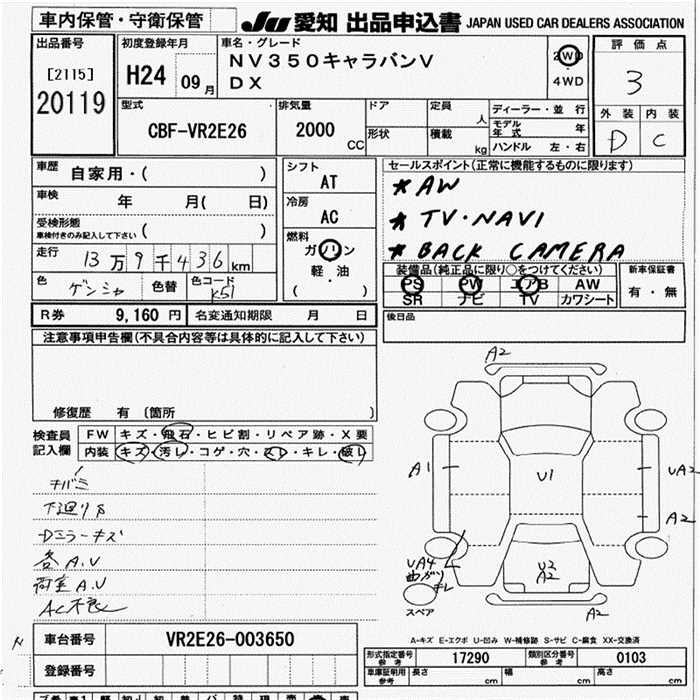 車内保管・守衛保管
JU 愛知 出品申込書 JAPAN USED CAR DEALERS ASSOCIATION
出品番号
[2115]
20119
初度登録年月
H24 09月
車名・グレード
NV350キャラバンV
DX
2WD
4WD
評価点
3
外装 内装
D C
型式
CBF-VR2E26
排気量
2000 CC
ドア
形状
定員 人
積載 kg
ディーラー・並行
モデル年式 年
ハンドル 左・右
車歴
自家用・( )
車検 年 月( 日)
受検形態
車検付きのみ記入して下さい ( )
走行 13万9千436km
色 ゲンシャ 色替 色コード K51
シフト
AT
冷房
AC
燃料
ガソリン
軽・油
( )
セールスポイント(正常に機能するものに限ります)
★AW
★TV・NAVI
★BACK CAMERA
装備品(純正品に限り○をつけてください)
PS PW エアB AW
SR ナビ TV カワシート
新車保証書
有・無
R券 9,160円 名変通知期限 月 日
後日品
注意事項申告欄(不具合内容等は具体的に記入して下さい)
修復歴 有 〔箇所 〕
検査員
記入欄
FW キズ・飛石・ヒビ割・リペア跡・X要
内装 キズ・汚レ・コゲ・穴・スレ・キレ・破レ
下廻りS
Dミラーキズ
各A.U
荷室A.U
AC不良
A2
A1
U1
UA2
A2
UA4
曲がり
キレ
U2
A2
A2
スペア
A-キズ E-エクボ U-凹み W-補修跡 S-サビ C-腐食 XX-交換済
車台番号 VR2E26-003650
登録番号
型式指定番号
参考
17290
類別区分番号
参考
0103
車庫証明用
参考
長さ cm 幅 cm 高さ cm